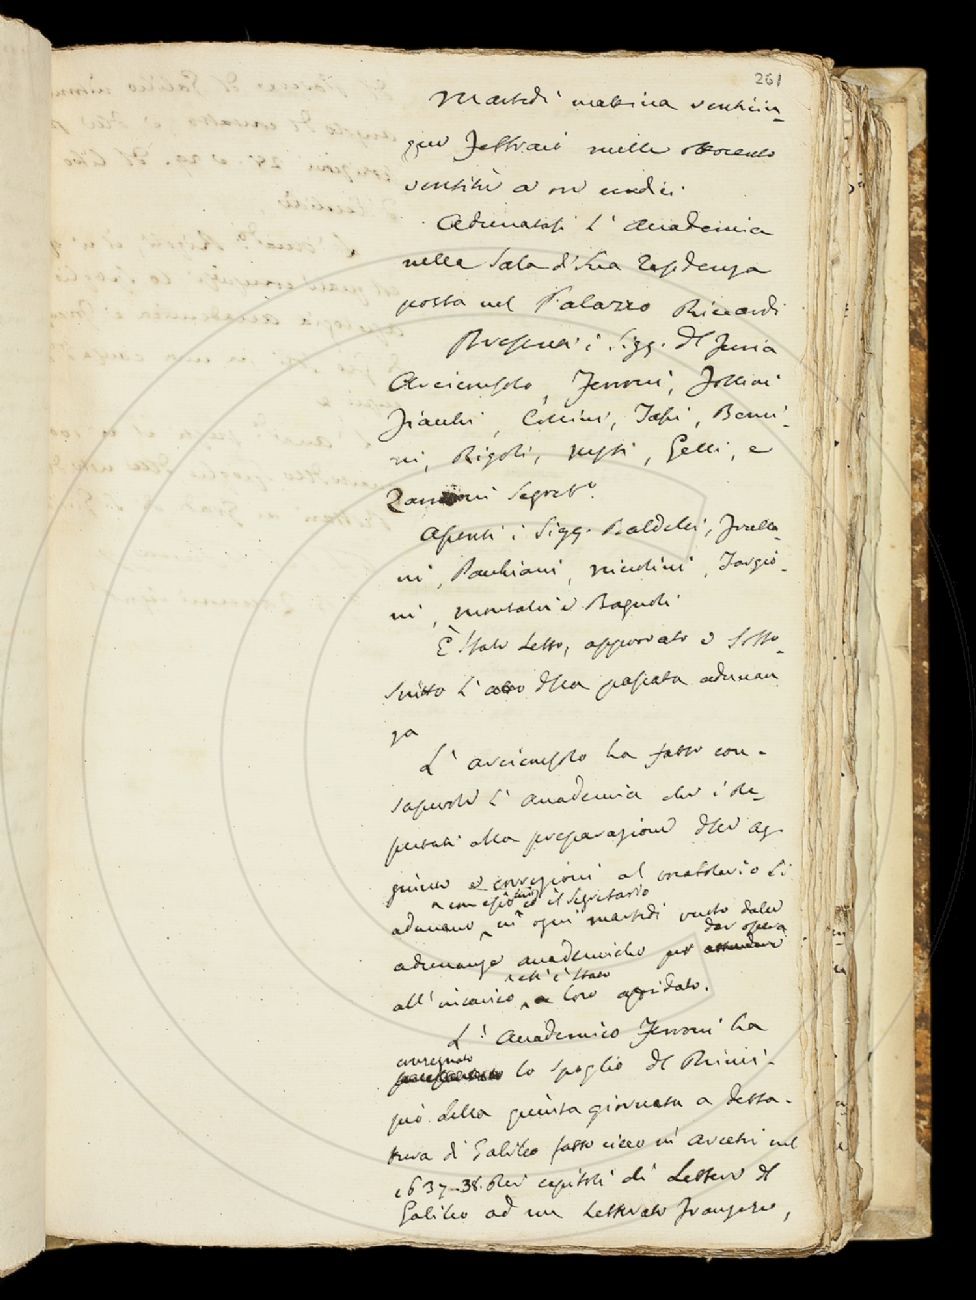 261
Martedì mattina venticin-
que Febbraio mille ottocento
ventitrè a ore undici
Adunatasi l'Accademia
nella Sala di sua residenza
posta nel Palazzo Riccardi
Presenti i Sigg. Del Furia
Arciconsolo, Ferroni, Follini
Fiacchi, Collini, Bencini-
ni, Rigoli, Gelli, e
Zannoni Segret.º
Assenti i Sigg. Baldelli, Frullani-
ni, Pauchiani, Niccolini, Targio-
ni, Montalvi e Bagnoli
È stato letto, approvato e sotto-
scritto l'atto della passata adunan
za
L'Arciconsolo ha fatto con-
sapevole l'Accademia che i De-
putati alla preparazione delle ag-
giunte e correzioni al vocabolario si
adunano ^ con esso il Segretario in ogni martedì vuoto dalle
adunanze accademiche per dar opera
all'incarico ^ ch'è stato a loro affidato.
L'Accademico Ferroni ha
consegnato lo spoglio del Princi-
pio della quinta giornata a detta-
tura di Galileo fatto cieco in Arcetri nel
1637-38. Dei capitoli di Lettere del
Galileo ad un Letterato Franzese,